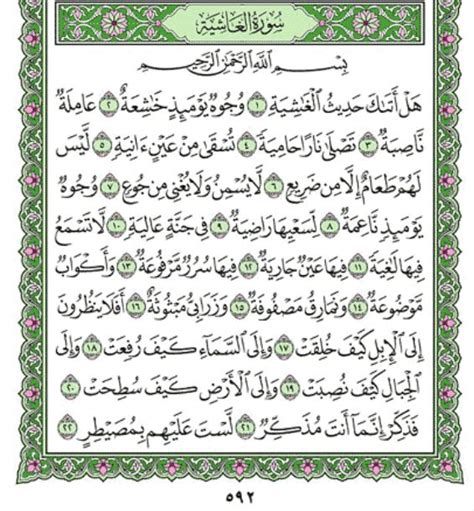 سُورَةُ الغَاشِيَةِ
بِسْمِ اللَّهِ الرَّحْمَٰنِ الرَّحِيمِ
هَلْ أَتَىٰكَ حَدِيثُ الْغَٰشِيَةِ ١ وُجُوهٌ يَوْمَئِذٍ خَٰشِعَةٌ ٢ عَامِلَةٌ
نَّاصِبَةٌ ٣ تَصْلَىٰ نَارًا حَامِيَةً ٤ تُسْقَىٰ مِنْ عَيْنٍ ءَانِيَةٍ ٥ لَّيْسَ
لَهُمْ طَعَامٌ إِلَّا مِن ضَرِيعٍ ٦ لَّا يُسْمِنُ وَلَا يُغْنِي مِن جُوعٍ ٧ وُجُوهٌ
يَوْمَئِذٍ نَّاعِمَةٌ ٨ لِّسَعْيِهَا رَاضِيَةٌ ٩ فِي جَنَّةٍ عَالِيَةٍ ١٠ لَّا تَسْمَعُ
فِيهَا لَٰغِيَةً ١١ فِيهَا عَيْنٌ جَارِيَةٌ ١٢ فِيهَا سُرُرٌ مَّرْفُوعَةٌ ١٣ وَأَكْوَابٌ
مَّوْضُوعَةٌ ١٤ وَنَمَارِقُ مَصْفُوفَةٌ ١٥ وَزَرَابِيُّ مَبْثُوثَةٌ ١٦ أَفَلَا يَنظُرُونَ
إِلَى الْإِبِلِ كَيْفَ خُلِقَتْ ١٧ وَإِلَى السَّمَاءِ كَيْفَ رُفِعَتْ ١٨ وَإِلَى
الْجِبَالِ كَيْفَ نُصِبَتْ ١٩ وَإِلَى الْأَرْضِ كَيْفَ سُطِحَتْ ٢٠
فَذَكِّرْ إِنَّمَا أَنتَ مُذَكِّرٌ ٢١ لَّسْتَ عَلَيْهِم بِمُصَيْطِرٍ ٢٢
٥٩٢